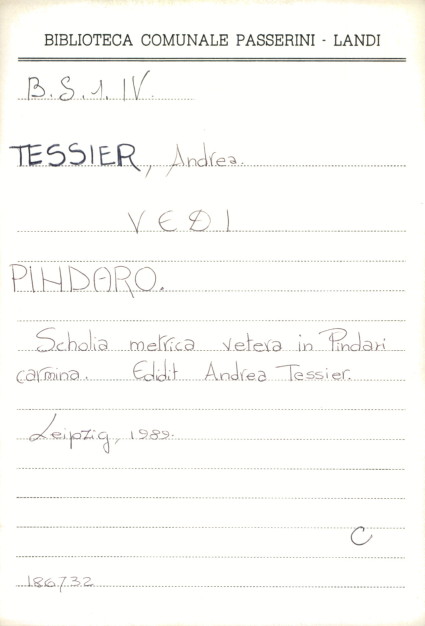 BIBLIOTECA COMUNALE PASSERINI - LANDI
B.S.1.IV.
TESSIER, Andrea.
VEDI
PINDARO.
Scholia metrica vetera in Pindari
carmina. Edidit Andrea Tessier.
Leipzig, 1989.
C
186732